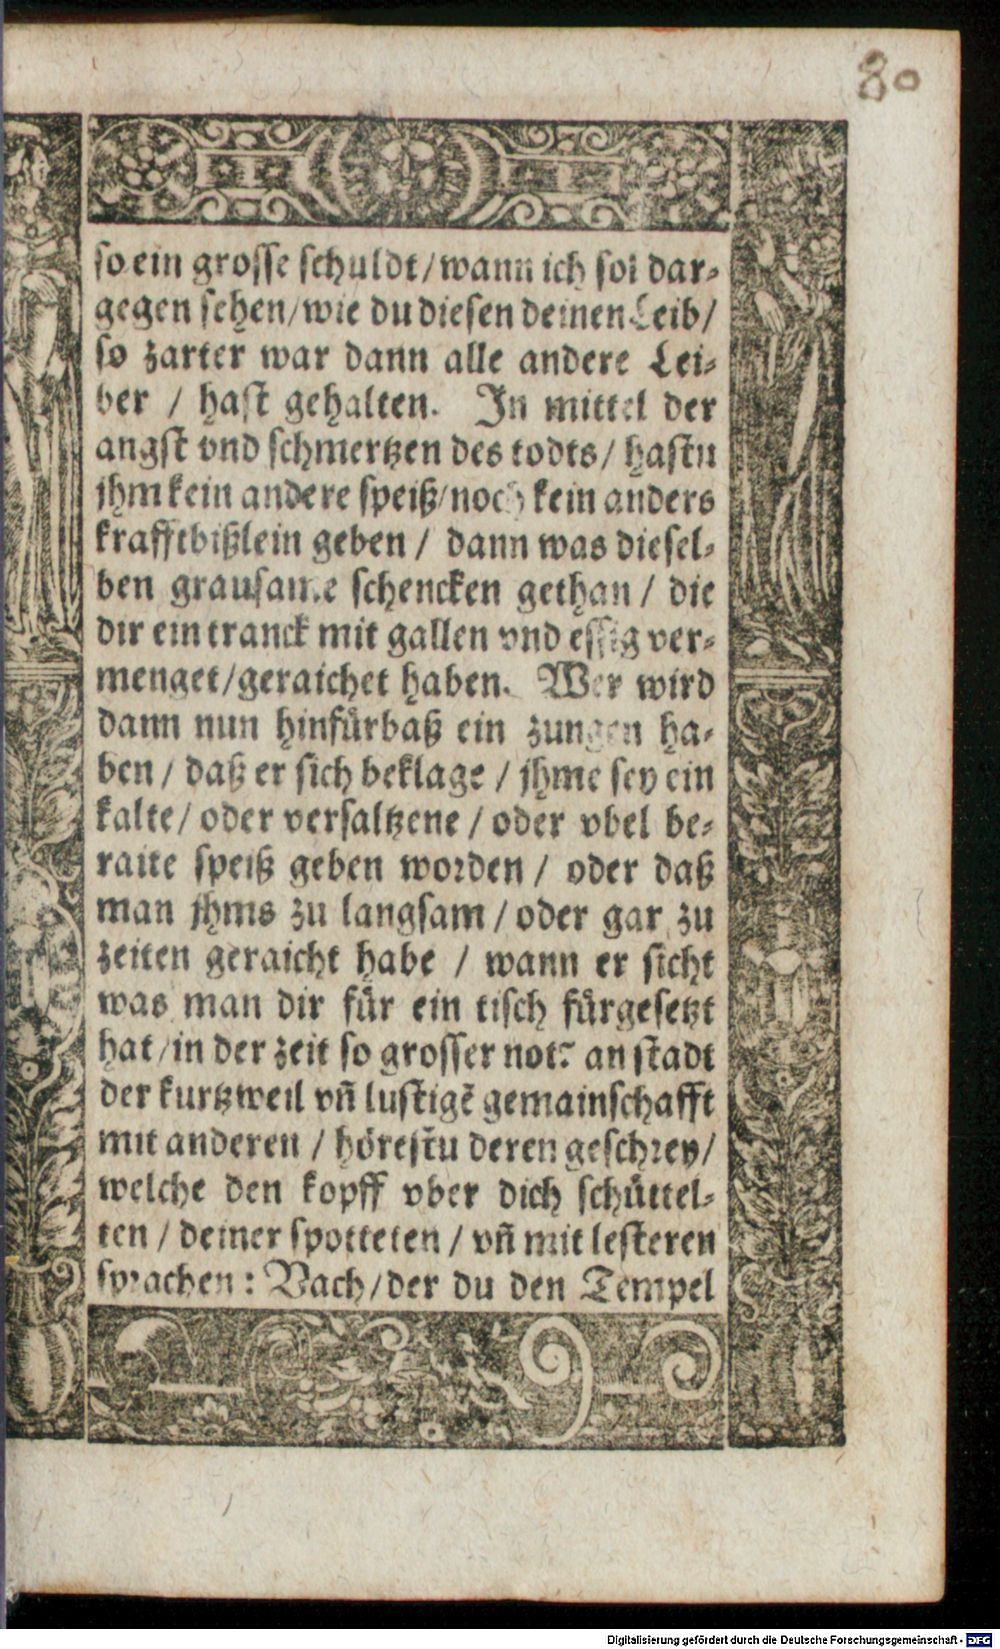 80
so ein grosse schuldt/wann ich sol dar-
gegen sehen/wie du diesen deinen Leib/
so zarter war dann alle andere Lei-
ber / hast gehalten. In mittel der
angst vnd schmertzen des todts/ hastu
jhm kein andere speiß/noch kein anders
krafftbißlein geben / dann was diesel-
ben grausame schencken gethan / die
dir ein tranck mit gallen vnd essig ver-
menget/geraichet haben. Wer wird
dann nun hinfürbaß ein zungen ha-
ben / daß er sich beklage / jhme sey ein
kalte/ oder versaltzene / oder vbel be-
raite speiß geben worden / oder daß
man jhms zu langsam / oder gar zu
zeiten geraicht habe / wann er sicht
was man dir für ein tisch fürgesetzt
hat/in der zeit so grosser not? an stadt
der kurtzweil vñ lustigẽ gemainschafft
mit anderen / hörestu deren geschrey/
welche den kopff vber dich schüttel-
ten / deiner spotteten / vñ mit lesteren
sprachen: Vach/der du den Tempel
Digitalisierung gefördert durch die Deutsche Forschungsgemeinschaft - DFG